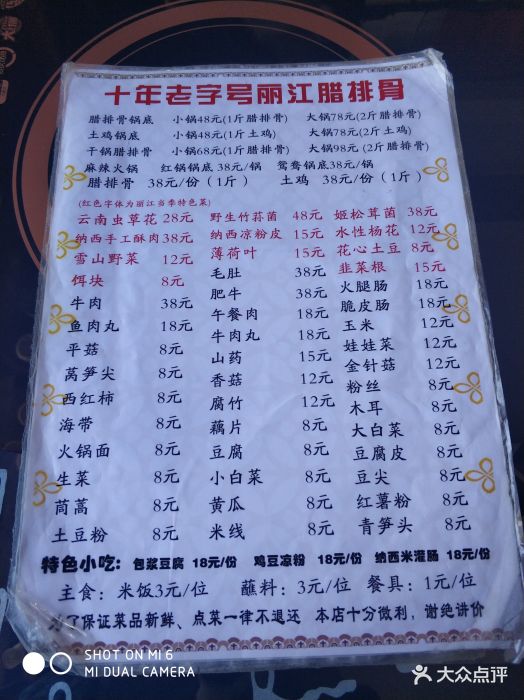 十年老字号丽江腊排骨
腊排骨锅底 小锅48元(1斤腊排骨) 大锅78元(2斤腊排骨)
土鸡锅底 小锅48元(1斤土鸡) 大锅78元(2斤土鸡)
干锅腊排骨 小锅68元(1斤腊排骨) 大锅98元(2斤腊排骨)
麻辣火锅 红锅锅底38元/锅 鸳鸯锅底38元/锅
腊排骨 38元/份(1斤) 土鸡 38元/份(1斤)
(红色字体为丽江当季特色菜)
云南虫草花 28元 野生竹荪菌 48元 姬松茸菌 38元
纳西手工酥肉38元 纳西凉粉皮 15元 水性杨花 12元
雪山野菜 12元 薄荷叶 15元 花心土豆 8元
饵块 8元 毛肚 38元 韭菜根 15元
牛肉 38元 肥牛 38元 火腿肠 18元
鱼肉丸 18元 午餐肉 18元 脆皮肠 18元
平菇 8元 牛肉丸 18元 玉米 12元
莴笋尖 8元 山药 15元 娃娃菜 12元
西红柿 8元 香菇 12元 金针菇 12元
海带 8元 腐竹 12元 粉丝 8元
火锅面 8元 藕片 8元 木耳 8元
生菜 8元 豆腐 8元 大白菜 8元
茼蒿 8元 小白菜 8元 豆腐皮 8元
土豆粉 8元 黄瓜 8元 豆尖 8元
米线 8元 红薯粉 8元
青笋头 8元
特色小吃: 包浆豆腐 18元/份 鸡豆凉粉 18元/份 纳西米灌肠 18元/份
主食: 米饭3元/位 蘸料: 3元/位 餐具: 1元/位
为了保证菜品新鲜、点菜一律不退还 本店十分微利,谢绝讲价
SHOT ON MI 6
MI DUAL CAMERA
大众点评